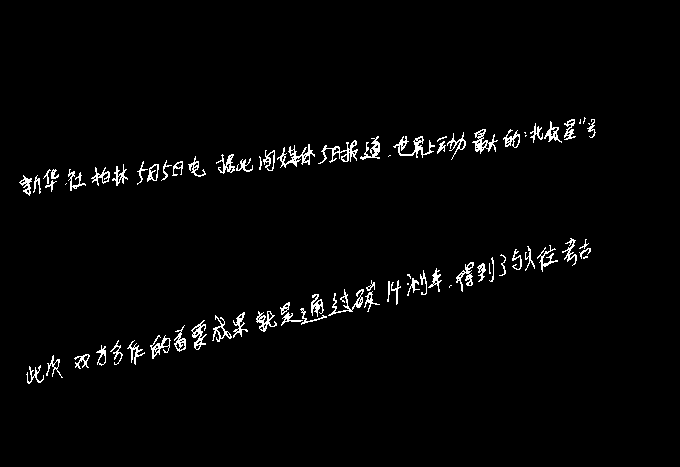 新华社柏林5月5日电 据此间媒体5日报道，世界上动力最大的“北极星”号
此次双方合作的首要成果就是通过碳14测年，得到了与以往考古